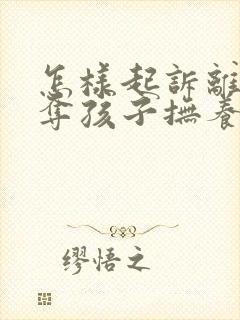 怎樣起訴離
奪孩子撫養
缪悟之